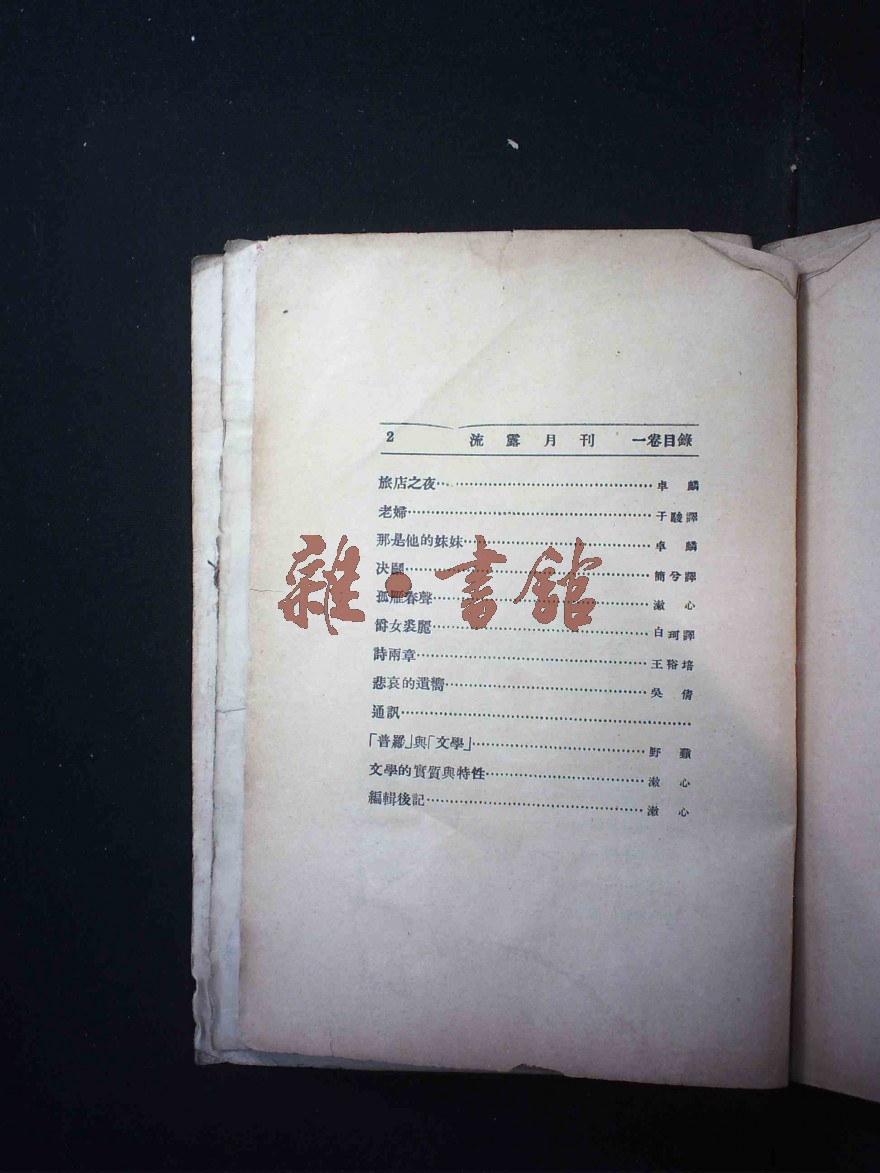 2 流露月刊 一卷目錄
旅店之夜…………………………卓麟
老婦…………………………于駿譯
那是他的妹妹…………………………卓麟
决鬭…………………………簡兮譯
孤雁春聲…………………………漱心
爵女裘麗…………………………白珂譯
詩兩章…………………………王裕培
悲哀的遺嚮…………………………吳倩
通訊…………………………
「普羅」與「文學」…………………………野蘋
文學的實質與特性…………………………漱心
編輯後記…………………………漱心
雜·書館